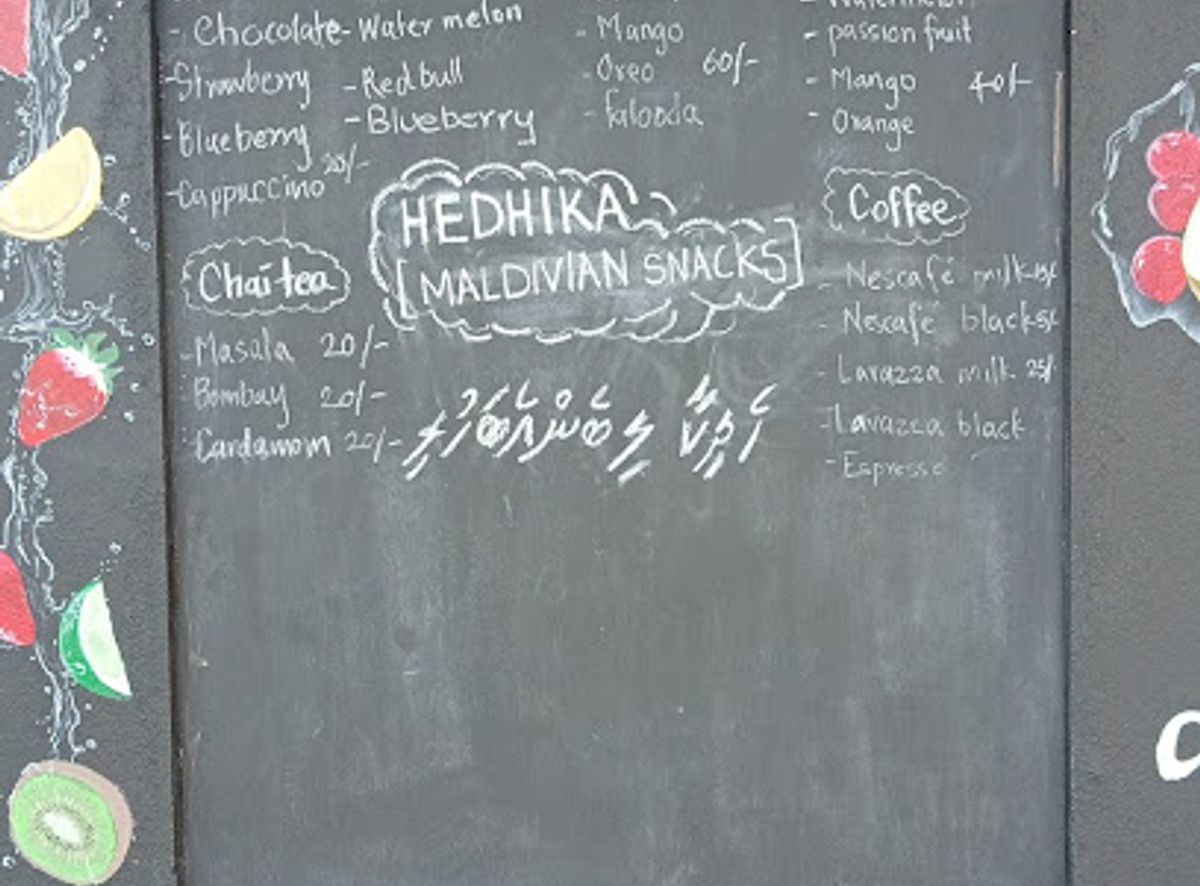 - Chocolate
- Strawberry
- Blueberry
- Cappuccino 20/-
- Water melon
- Redbull
- Blueberry
- Mango
- Oreo 60/-
- falooda
- passion fruit
- Mango 40/-
- Orange
HEDHIKA
[MALDIVIAN SNACKS]
Chai tea
- Masala 20/-
- Bombay 20/-
- Cardamom 20/-
Coffee
- Nescafé milk
- Nescafé black
- Lavazza milk 25/-
- Lavazza black
- Espresso